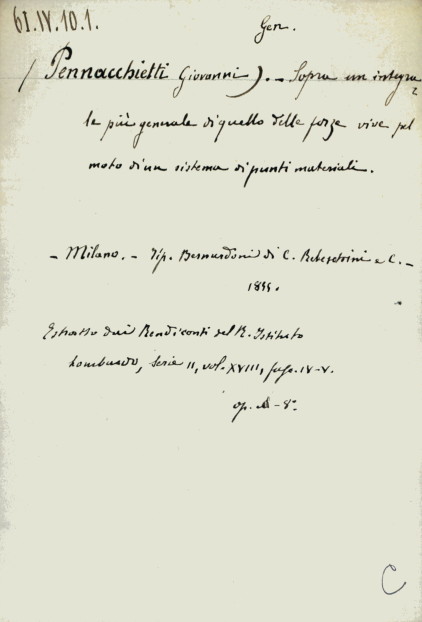 61.IV.10.1.
Gen.
(Pennacchietti Giovanni). - Sopra un integra
le più generale di quello delle forze vive pel
moto di un sistema di punti materiali.
- Milano. - Tip. Bernardoni di C. Rebeschini e C. -
Estratto dai Rendiconti del R. Istituto
Lombardo, Serie II, vol. XVIII, fasc. IV-V.
op. - 8°.
C